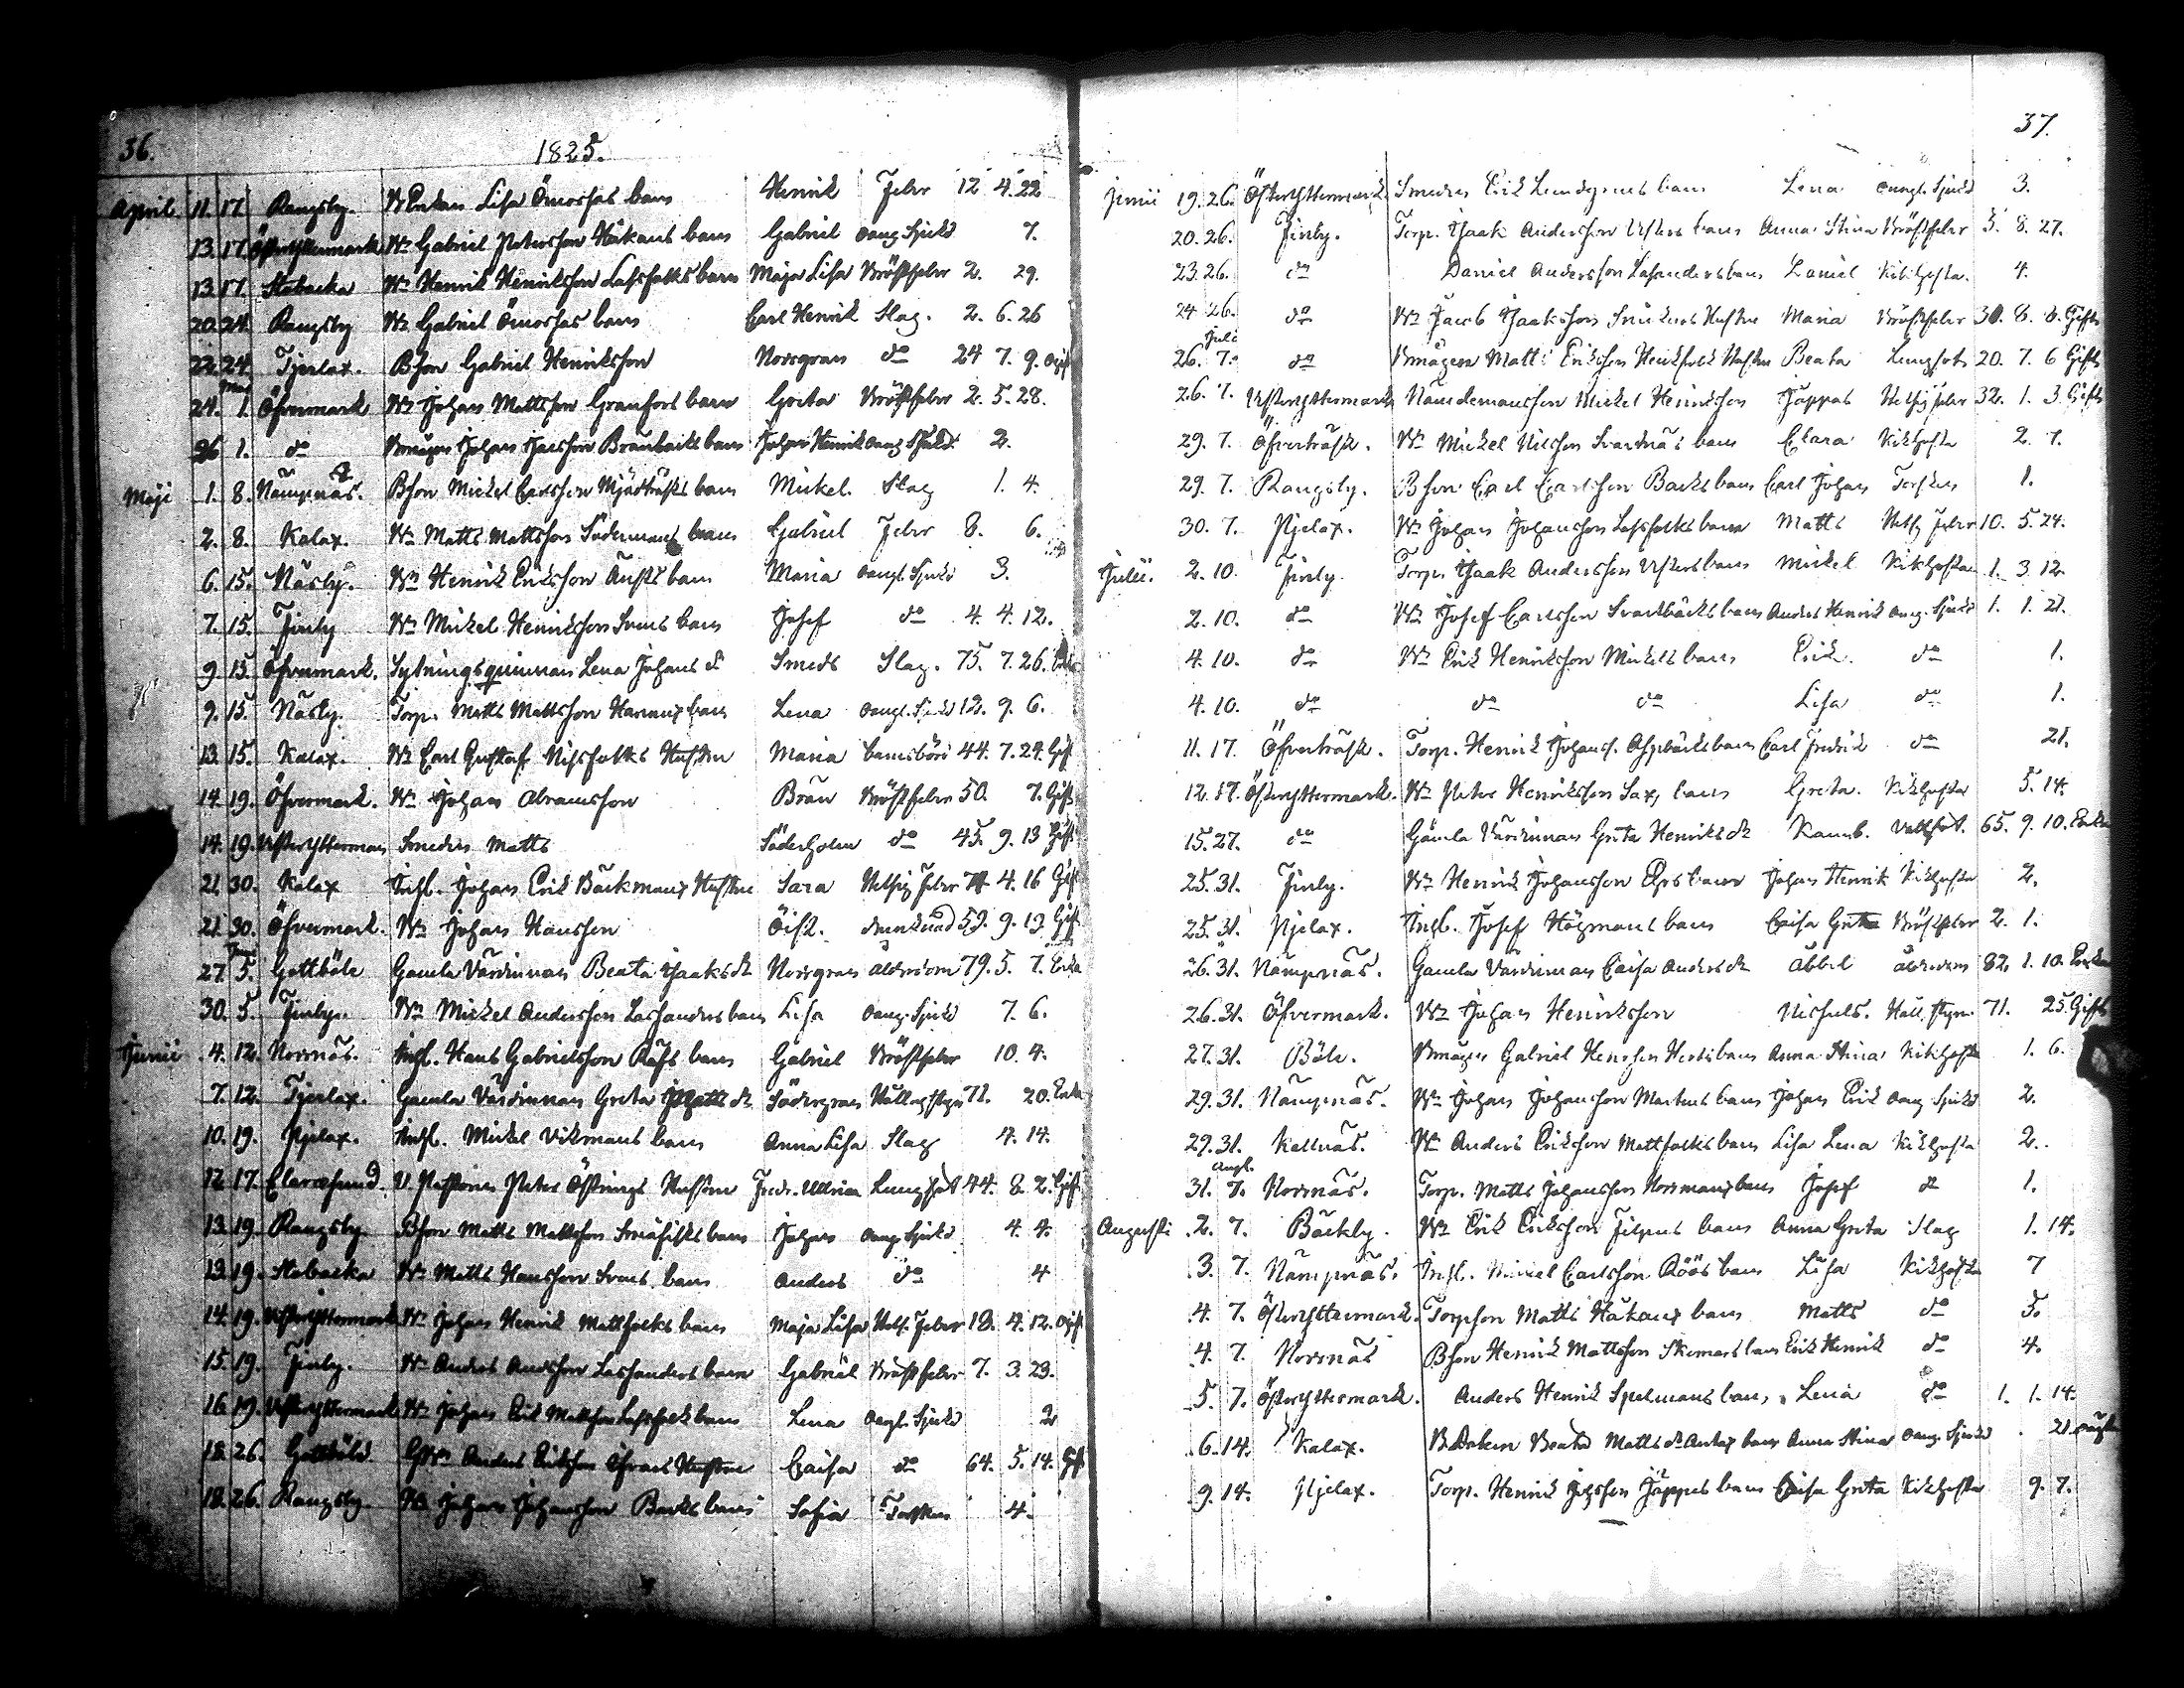 36.
1825.
April 11. 17. Rangsby. Enkan Lisa Omossas barn Henrik Feber 12 4. 22
13. 17. Östersyttermark Gabriel Petersson Håkans barn Gabriel oang. Sjukd 7.
13. 17. Stobacka Henrik Henriksson Lassfolks barn Maja Lisa Bröstfeber 2. 29.
20. 24. Rangsby Gabriel Omossas barn Carl Henrik Slag. 2. 6. 26
22. 24. Tjerlax. Bson Gabriel Henriksson Norrgran do 24 7. 9. ogift
24. Maj 1. Öfvermark Johan Mattsson Granfors barn Greta Bröstfeber 2. 5. 28.
26 1. do Bmågen Johan barn Johan Henrik oang Sjukd. 2.
Maji 1. 8. Nämpnäs. Bson Mickel Carlsson Mjödträsks barn Mickel. Slag 1. 4.
2. 8. Kalax. Matts Mattsson Södermans barn Gabriel Feber 8. 6.
6. 15. Näsby. Henrik Eriksson barn Maria oangl. Sjukd 3.
7. 15. Finby Mickel Henriksson Svens barn Josef do 4. 4. 12.
9 15. Öfvermark. Sytningsquinnan Lena Johans dr Smeds Slag. 75. 7. 26. Enka
9. 15. Näsby. Torp. Matts Mattsson barn Lena oangl. Sjukd 12. 9. 6.
13. 15. Kalax. Carl Gustaf Nissfolks Hustru Maria barnsbörd 44. 7. 29. Gift
14. 19. Öfvermark. Johan Abramsson Brän Bröstfeber 50. 7. Gift
14. 19. Smeden Matts Söderholm do 45. 9. 13 Gift
21 30. Kalax Inhl. Johan Erik Bäckmans Hustru Sara Feber 4. 16 Gift
21. 30. Öfvermark. Johan Hansson Öist. drunknad 59. 9. 13 Gift
27 Juni 5. Gottböle Gamla Värdinnan Beata Isaks dr Norrgran ålderdom 79. 5. 7. Enka
30. 5. Finby. Mickel Andersson Lassanders barn Lisa oang. Sjukd 7. 6.
Junii 4. 12. Norrnäs. Inhl. Hans Gabrielsson Räfs barn Gabriel Bröstfeber 10. 4.
7. 12. Tjerlax. Gamla Värdinnan Greta Matts dr Södergran Håll o styn 71. 20. Enka
10. 19. Pjelax. Inhl. Mickel Vikmans barn Anna Lisa Slag 4. 14.
12 17. Peter Östrings Hustru Fredr. Ulrica Lungsot 44. 8. 2. Gift
13. 19. Rangsby. Bson Matts Mattsson Småfisks barn Johan oang Sjukd 4. 4.
13. 19. Stobacka Matts Hansson Svens barn Anders do 4
14. 19. Vestersyttermark Johan Henrik Mattfolks barn Maja Lisa Feber 18. 4. 12. ogift
15. 19. Finby. Anders Andersson Lassanders barn Gabriel Bröstfeber 7. 3. 23.
16. 19. Vestersyttermark Johan Erik Mattsson Lassfolk barn Lena oangl. Sjukd 2
18. 26. Gottböle Anders Eriksson Israels Hustru Caisa do 64. 5. 14. Gift
18. 26. Rangsby. Johan Johansson Backs barn Sofia Torsken 4.
37.
Junii 19. 26. Östersyttermark Smeden Erik Lundgrens barn Lena oangl. Sjukd 3.
20. 26. Finby. Torp. Isaak Andersson Vesters barn Anna Stina Bröstfeber 5. 8. 27.
23. 26. do Daniel Andersson Lassanders barn Daniel Kikhosta. 4.
24 26. do Jacob Isaksson Snickars Hustru Maria Bröstfeber 30. 8. 8. Gift
26. Juli 7. do Bmågen Matts Eriksson Hustru Beata Lungsot 20. 7. 6 Gift
26. 7. Vestersyttermark Nämdemansson Mickel Henriksson Jäppas feber 32. 1. 3. Gift
29. 7. Öfverträsk. Mickel Nilsson Svartnäs barn Clara Kikhosta 2. 7.
29. 7. Rangsby. Bson Carl Carlsson Backs barn Carl Johan Torsken 1.
30. 7. Pjelax. Johan Johansson Lassfolks barn Matts Feber 10. 5. 24.
Julii. 2. 10. Finby. Torp. Isaak Andersson Vesters barn Mickel Kikhosta 1. 3. 12.
2. 10. do Josef Carlsson Svartbäcks barn Anders Henrik oang. Sjukd 1. 1. 21.
4. 10. do Erik Henriksson Mickels barn Erik. do 1.
4. 10. do do do Lisa do 1.
11. 17. Öfverträsk. Torp. Henrik Johanss. Aspbäcks barn Carl Fredrik do 21.
12. 17. Östersyttermark. Peter Henriksson Sax, barn Greta. Kikhosta 5. 14.
15. 27. do Gamla Värdinnan Greta Henriks dr Kamb. Vattsot. 65. 9. 10. Enka
25. 31. Finby. Henrik Johansson barn Johan Henrik Kikhosta 2.
25. 31. Pjelax. Inhl. Josef Högmans barn Caisa Greta Bröstfeber 2. 1.
26. 31. Nämpnäs. Gamla Värdinnan Caisa Anders dr Abbel ålderdom 82. 1. 10. Enka
26. 31. Öfvermark. Johan Henriksson Nissuls. Håll. styn. 71. 25. Gift
27. 31. Böle. Bmågen Gabriel Henrsson barn Anna Stina Kikhosta 1. 6.
29. 31. Nämpnäs. Johan Johansson Martens barn Johan Erik oang Sjukd 2.
29. 31. Kallnäs. Anders Eriksson Mattfolks barn Lisa Lena Kikhosta 2.
31. Aug. 7. Norrnäs. Torp. Matts Johansson Norrmans barn Josef do 1.
Augusti 2. 7. Bäckby. Erik Eriksson Filpus barn Anna Greta Slag 1. 14.
3. 7. Nämpnäs. Inhl. Mickel Carlsson Röös barn Lisa Kikhosta 7
4. 7. Östersyttermark. Torpson Matts Håkans barn Matts do 5.
4. 7. Norrnäs Bson Henrik Mattsson barn Erik Henrik do 4.
5. 7. Östersyttermark. Anders Henrik Spelmans barn, Lena do 1. 1. 14.
6. 14. Kalax. Beata Matts dr barn Anna Stina oang. Sjukd 21.
9. 14. Pjelax. Torp. Henrik Johsson Jäppas barn Caisa Greta Kikhosta 9. 7.